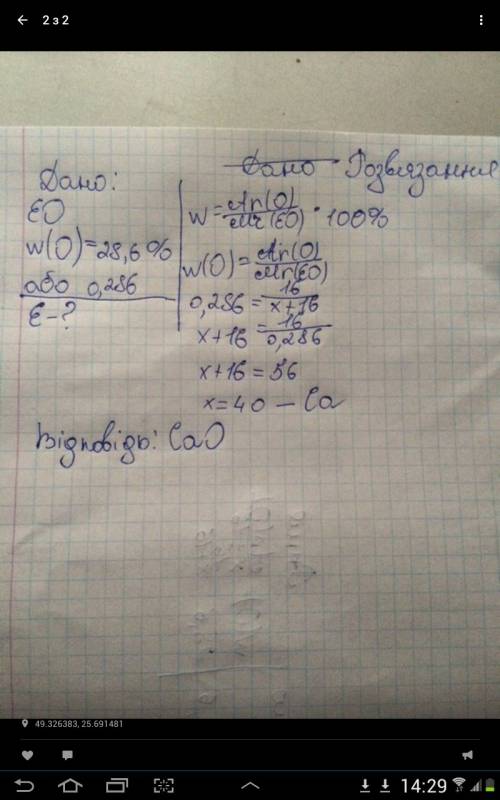 2 з 2
Дано Розвязання
Дано:
EO
w(O)=28,6%
або 0,286
E-?
w=Ar(O)/Mr(EO)·100%
w(O)=Ar(O)/Mr(EO)
0,286=16/x+16
x+16=16/0,286
x+16=56
x=40 – Ca
Відповідь: CaO
49.326383, 25.691481
14:29